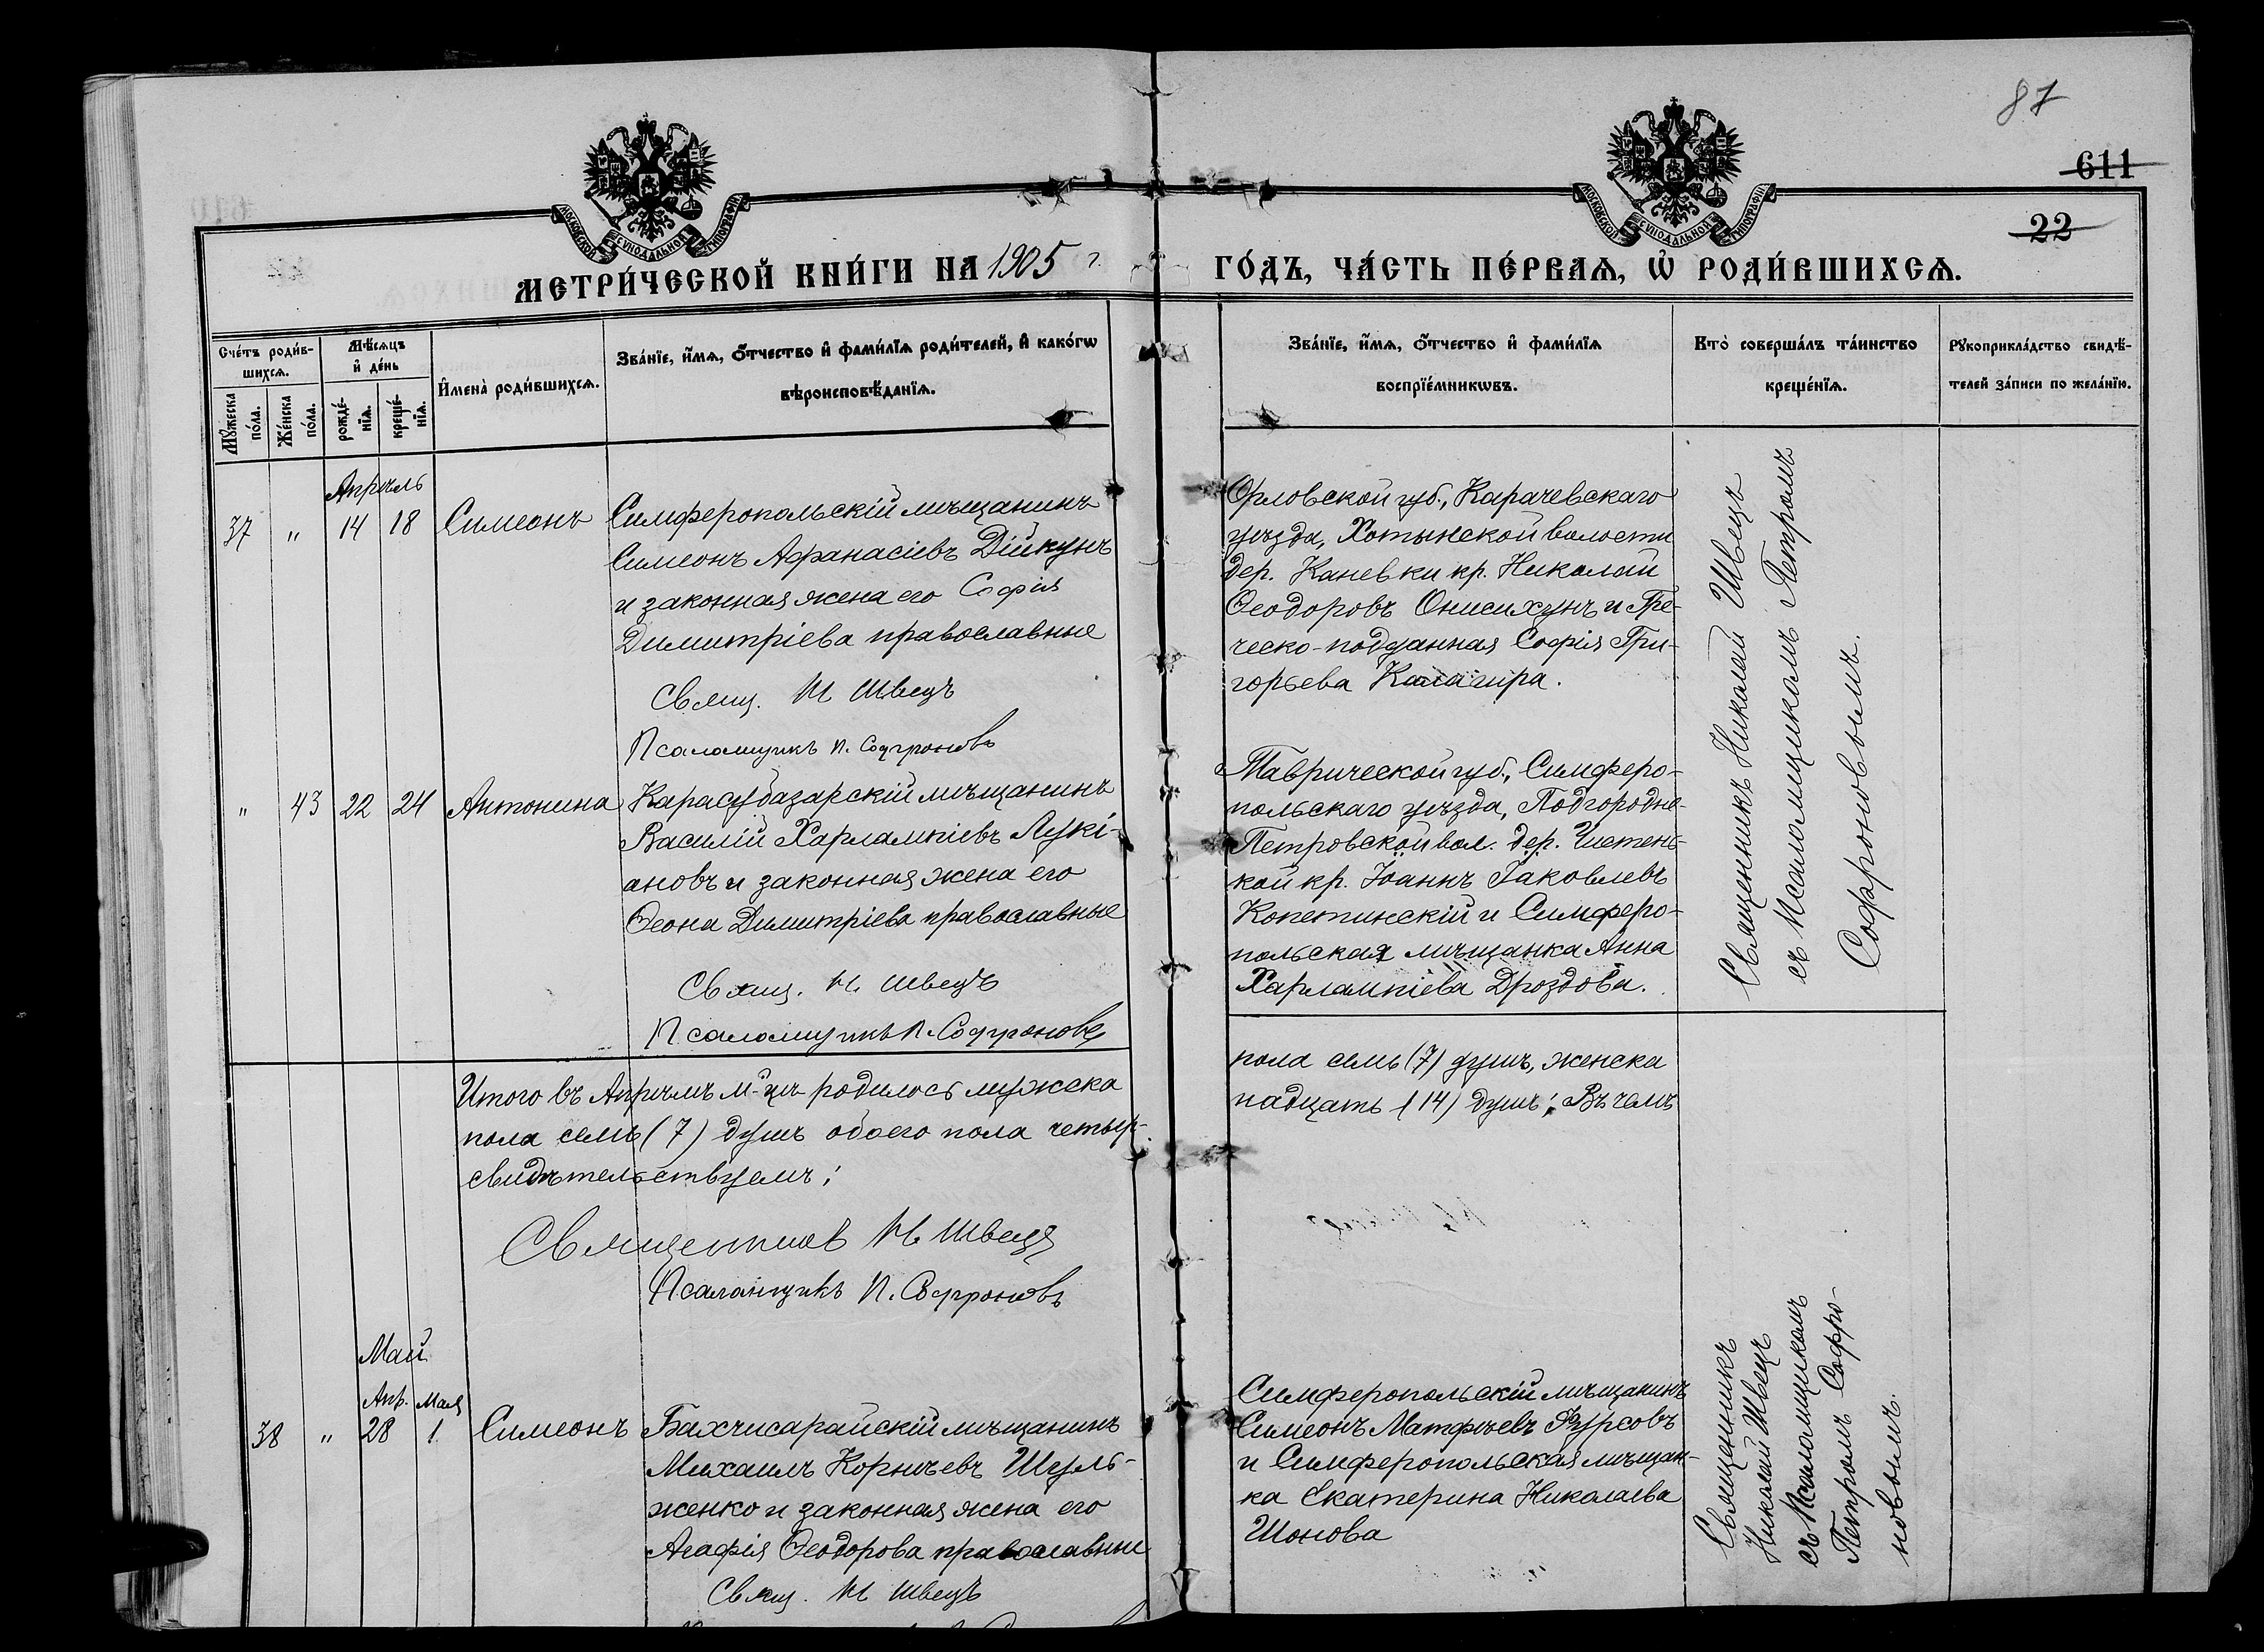 87
611
22
МОСКОВСКОЙ СѴНОДАЛЬНОЙ ТИПОГРАФІИ
МОСКОВСКОЙ СѴНОДАЛЬНОЙ ТИПОГРАФІИ
МЕТРИ́ЧЕСКОЙ КНИ́ГИ НА 1905 г.
ГО́ДЪ, ЧА́СТЬ ПЕ́РВАѦ, Ѡ҆ РОДИ́ВШИХСѦ.
Сче́тъ роди́в-
шихсѧ.
Мꙋ́жеска по́ла.
Же́нска по́ла.
Мѣ́сѧцъ и҆ де́нь
рожде́-нїѧ.
креще́-нїѧ.
И҆мена̀ роди́вшихсѧ.
Зва́нїе, и҆́мѧ, ѻ҆́тчество и҆ фами́лїѧ роди́телей, и҆ како́гѡ
вѣроисповѣ́данїѧ.
Зва́нїе, и҆́мѧ, ѻ҆́тчество и҆ фами́лїѧ
воспрїе́мникѡвъ.
Кто̀ соверша́лъ та́инство
креще́нїѧ.
Рꙋкоприкла́дство свидѣ́-
телей за́писи по жела́нїю.
Апрѣль
37 " 14 18 Симеонъ
Симферопольскій мѣщанинъ
Симеонъ Афанасіевъ Дійкунъ
и законная жена его Софія
Димитріева православные
Свящ. Н Швецъ
Псаломщикъ П. Софроновъ
Орловской губ., Карачевскаго
уѣзда, Хотынской волости
дер. Каневки кр. Николай
Ѳеодоровъ Онисихунъ и Гре-
ческо-подданная Софія Гри-
горьева Калагира.
Священникъ Николай Швецъ
съ Псаломщикомъ Петромъ
Софроновымъ.
" 43 22 24 Антонина
Карасубазарскій мѣщанинъ
Василій Харлампіевъ Лукі-
ановъ и законная жена его
Ѳеона Димитріева православные
Свящ. Н. Швецъ
Псаломщикъ П. Софроновъ
Таврической губ., Симферо-
польскаго уѣзда, Подгородне-
Петровской вол. дер. Чистень-
кой кр. Іоаннъ Іаковлевъ
Копетинскій и Симферо-
польская мѣщанка Анна
Харлампіева Дроздова.
Итого въ Апрѣлѣ м-цѣ родилось мужска
пола семь (7) душъ, женска
пола семь (7) душъ обоего пола четыр-
надцать (14) душъ; Въ чемъ
свидѣтельствуемъ:
Священникъ Н. Швецъ
Псаломщикъ П. Софроновъ
Май
Апр. Мая
38 " 28 1 Симеонъ
Бахчисарайскій мѣщанинъ
Михаилъ Корнѣевъ Шуль-
женко и законная жена его
Агафія Ѳеодорова православные
Свящ. Н Швецъ
Симферопольскій мѣщанинъ
Симеонъ Матфѣевъ Фурсовъ
и Симферопольская мѣщан-
ка Екатерина Николаева
Шонова
Священникъ
Николай Швецъ
съ Псаломщикомъ
Петромъ Софро-
новымъ.